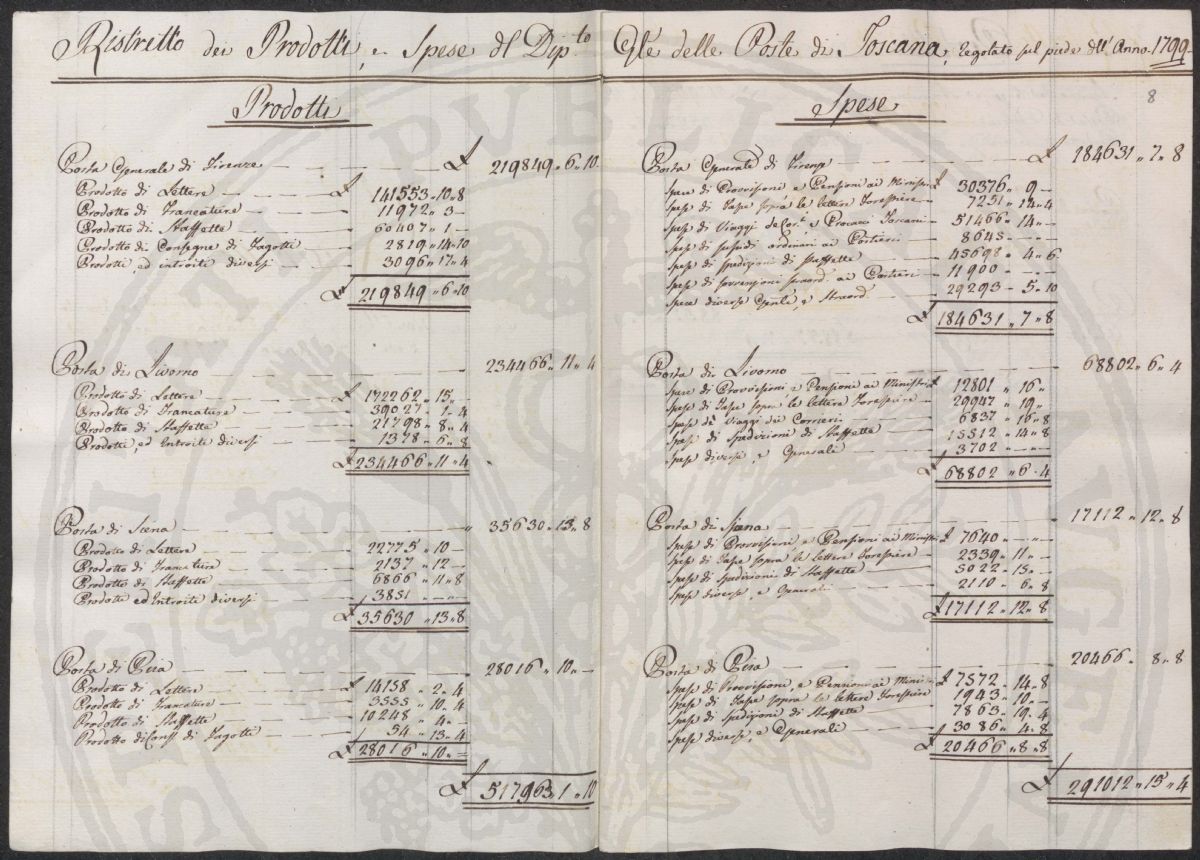 Ristretto dei Prodotti, e Spese dl Dip.to Gle delle Poste di Toscana, regolato sul piede dell'Anno 1799
8
Prodotti
Posta Generale di Firenze £ 219849 „ 6 „ 10
Prodotto di Lettere £ 141553 „ 10 „ 8
Prodotto di Francature 11972 „ 3 —
Prodotto di Staffette 60407 „ 1 —
Prodotto di Consegne di Fagotti 2819 „ 14 „ 10
Prodotti, ed introiti diversi 3096 „ 17 „ 4
£ 219849 „ 6 „ 10
Posta di Livorno 234466 „ 11 „ 4
Prodotto di Lettere £ 172262 „ 15 „
Prodotto di Francature 39027 „ 1 „ 4
Prodotto di Staffette 21798 „ 8 „ 4
Prodotti, ed Introiti diversi 1378 „ 6 „ 8
£ 234466 „ 11 „ 4
Posta di Siena „ 35630 „ 13 „ 8
Prodotto di Lettere 22775 „ 10 —
Prodotto di Francature 2137 „ 12 —
Prodotto di Staffette 6866 „ 11 „ 8
Prodotti ed Introiti diversi 3851 „ — „ —
£ 35630 „ 13 „ 8
Posta di Pisa 28016 „ 10 „ —
Prodotto di Lettere £ 14158 „ 2 „ 4
Prodotto di Francature 3555 „ 10 „ 4
Prodotto di Staffette 10248 „ 4 „ —
Prodotto di Fagotti 54 „ 13 „ 4
£ 28016 „ 10 „ —
£ 517963 „ 1 „ 10
Spese
Posta Generale di Firenze £ 184631 „ 7 „ 8
Spese di Provvisioni e Pensioni ai Ministri £ 30376 „ 9 —
Spese di Tasse sopra le lettere Forestiere 7251 „ 14 „ 4
Spese di Viaggi de Cor.i e Procacci Toscani 51466 „ 14 „ —
Spese di sussidi ordinari ai Postieri 8645 „ — „ —
Spese di spedizioni di Staffette 45698 „ 4 „ 6
Spese di sovvenzioni straord. ai Postieri 11900 — „ —
Spese diverse Genli, e Straord. 29293 — 5 „ 10
£ 184631 „ 7 „ 8
Posta di Livorno 68802 „ 6 „ 4
Spese di Provvisioni e Pensioni ai Ministri £ 12801 „ 16 „
Spese di Tasse sopra le lettere Forestiere 29947 „ 19 „
Spese de Viaggi dei Corrieri 6837 „ 16 „ 8
Spese di Spedizioni di Staffette 15512 „ 14 „ 8
Spese diverse, e Generali 3702 „ — „ —
£ 68802 „ 6 „ 4
Posta di Siena 17112 „ 12 „ 8
Spese di Provvisioni e Pensioni ai Ministri £ 7640 „ — „ —
Spese di Tasse sopra le lettere Forestiere 2339 „ 11 „ —
Spese di Spedizioni di Staffette 5022 „ 15 „ —
Spese diverse, e Generali 2110 „ 6 „ 8
£ 17112 „ 12 „ 8
Posta di Pisa 20466 „ 8 „ 8
Spese di Provvisioni, e Pensioni ai Ministri £ 7572 „ 14 „ 8
Spese di Tasse sopra le lettere Forestiere 1943 „ 10 „ —
Spese di Spedizioni di Staffette 7863 „ 19 „ 4
Spese diverse, e Generali 3086 „ 4 „ 8
£ 20466 „ 8 „ 8
£ 291012 „ 15 „ 4